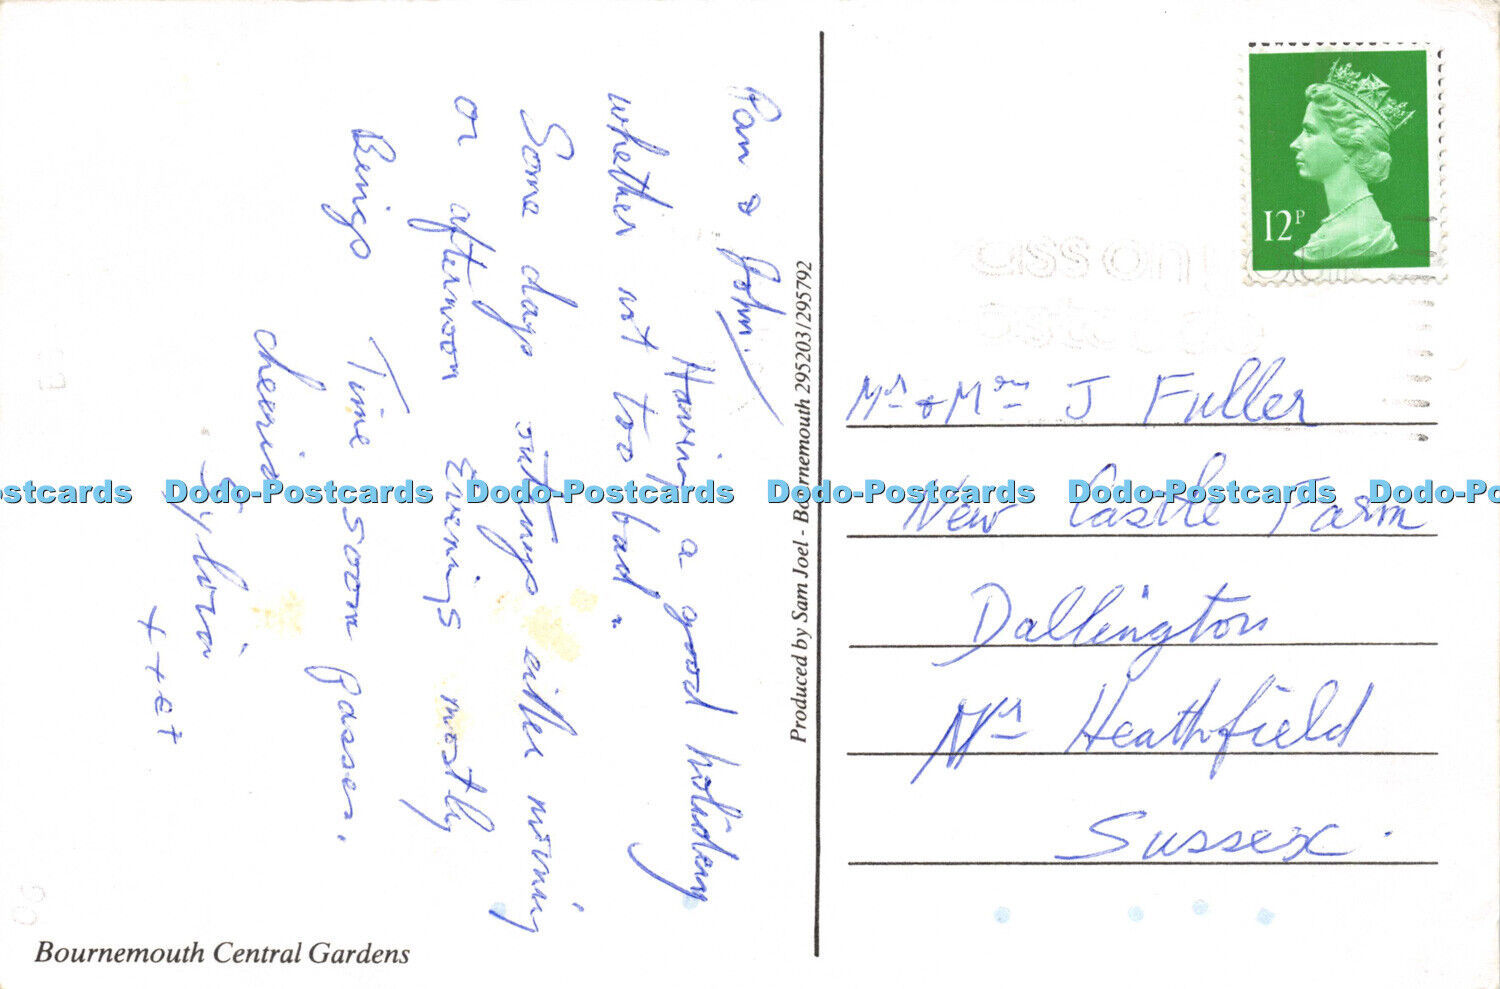 Pam & John.
Having a good holiday
whether not too bad.
Some days sittings either morning
or afternoon Evenings mostly
Beings Time soon passes.
cheerio
Sylvia
x x
Bournemouth Central Gardens
Produced by Sam Joel - Bournemouth 295203/295792
12P
Mr & Mrs J Fuller
New Castle Farm
Dallington
Nr Heathfield
Sussex.
Dodo-Postcards Dodo-Postcards Dodo-Postcards Dodo-Postcards